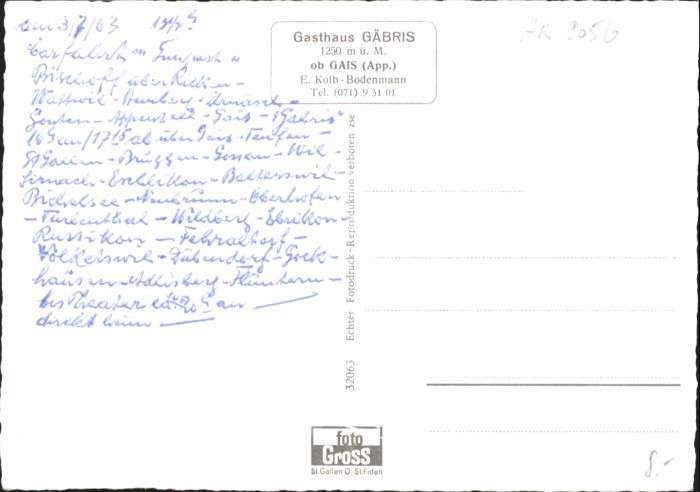 am 3/7/63
Carfahrt
Bischoff über Ricken-
Wattwil-Hemberg-Urnäsch-
Gonten-Appenzell-Gais-"Gäbris"
an/17¹⁵ ab über Gais-Teufen-
St Gallen-Brüggen-Gossau-Wil-
Sirnach-Eschlikon-Balterswil-
Bichelsee-Neubrunn-Oberhofen
-Turbenthal-Wildberg-Ehrikon-
Russikon-Fehraltorf-
Volketswil-Dübendorf-Gock-
hausen-Adlisberg-Fluntern-
bis Theater an
direkt heim
Gasthaus GÄBRIS
1250 m ü. M.
ob GAIS (App.)
E. Kolb-Bodenmann
Tel. (071) 9 31 01
AR 3056
32063 Echter Fotodruck-Reproduktion verboten zse
foto
Gross
St.Gallen O St.Fiden
8.-